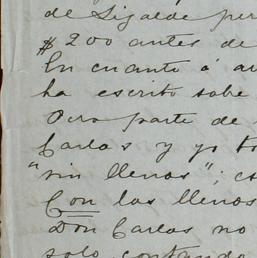 de Lizalde per
$200 antes de
En cuanto á ar
ha escrito sobe
Otra parte de
Carlos y yo to
"sin llenos"; es
Con las llenos
Don Carlos no
solo contando